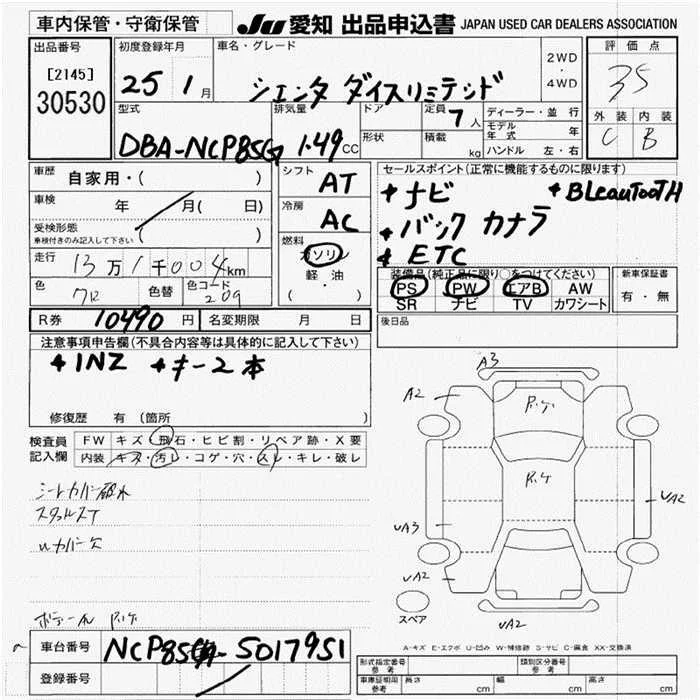 車内保管・守衛保管 JU 愛知 出品申込書 JAPAN USED CAR DEALERS ASSOCIATION
出品番号 初度登録年月 車名・グレード 2WD ・ 4WD 評価点
[2145] 25 1月 シエンタ ダイスリミテッド 35
30530
型式 排気量 ドア 定員 7人 ディーラー・並行 外装 内装
DBA-NCP85G 1.49CC 形状 積載 kg モデル年式 年 C B
ハンドル 左・右
車歴 自家用・( ) シフト AT セールスポイント(正常に機能するものに限ります)
車検 年 月( 日) 冷房 AC +ナビ +BLeauTooTH
受検形態 +バック カメラ
車検付きのみ記入して下さい ( ) 燃料 ガソリン + ETC
走行 13万1千004km 軽油 装備品(純正品に限り○をつけてください) 新車保証書
色 色替 色コード 209 ( ・ ) PS PW エアB AW 有・無
SR ナビ TV カワシート
R券 10490円 名変期限 月 日 後日品
注意事項申告欄(不具合内容等は具体的に記入して下さい)
+1NZ +キー2本
修復歴 有 (箇所 )
検査員 FW キズ・飛石・ヒビ割・リペア跡・X要
記入欄 内装 キズ・汚レ・コゲ・穴・スレ・キレ・破レ
A3
A2
UA2
UA3
UA2
スペア UA2
A-キズ E-エクボ U-凹み W-補修跡 S-サビ C-腐食 XX-交換済
車台番号 NCP85 - 5017951
登録番号
形式指定番号 参考 類別区分番号 参考
車庫証明用 参考 長さ cm 幅 cm 高さ cm